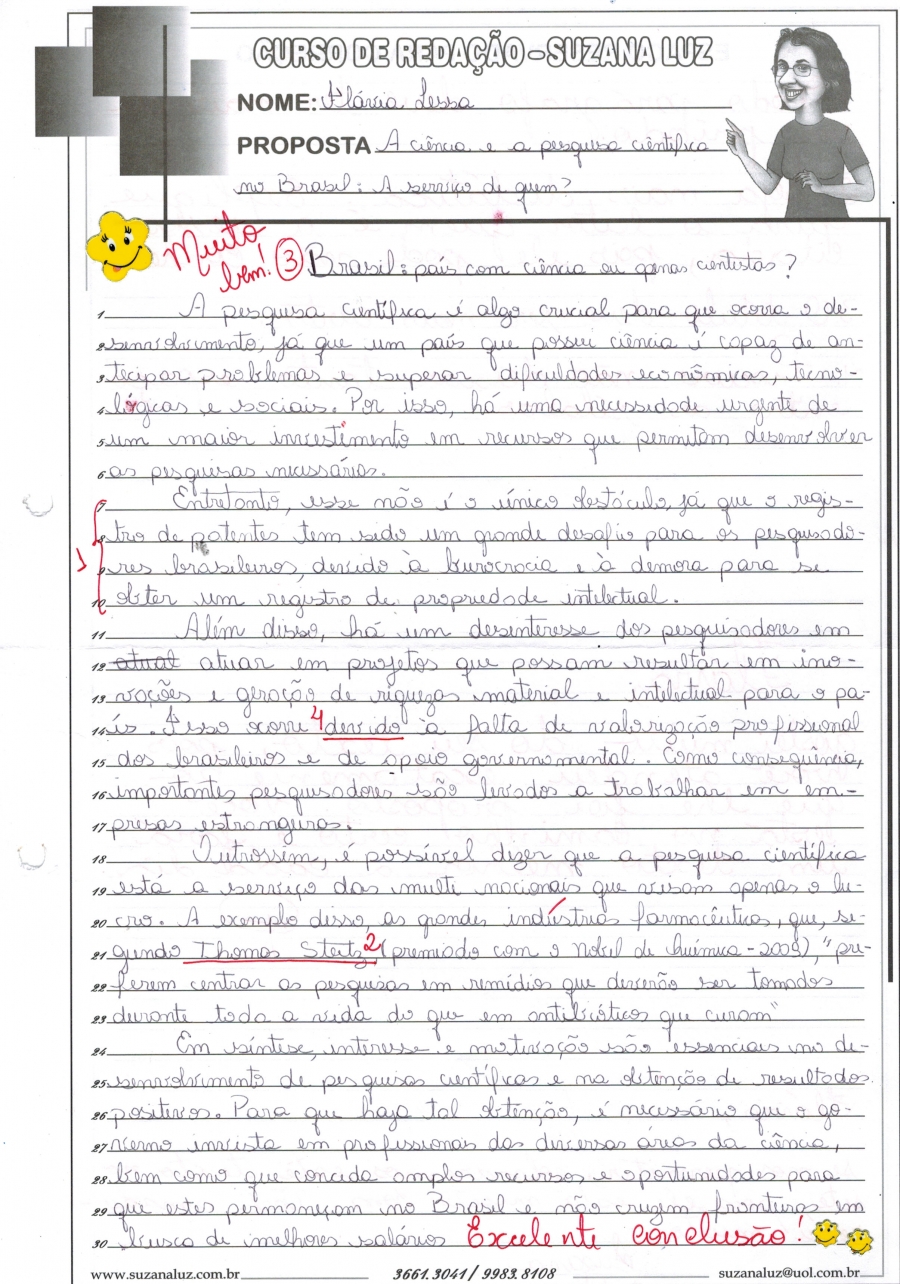 CURSO DE REDAÇÃO - SUZANA LUZ
NOME: Flávia Lessa
PROPOSTA A ciência e a pesquisa científica
no Brasil: A serviço de quem?
Muito
bem!
3 Brasil: país com ciência ou apenas cientistas?
1 A pesquisa científica é algo crucial para que ocorra o de-
2 senvolvimento, já que um país que possui ciência é capaz de an-
3 tecipar problemas e superar dificuldades econômicas, tecno-
4 lógicas e sociais. Por isso, há uma necessidade urgente de
5 um maior investimento em recursos que permitam desenvolver
6 as pesquisas necessárias.
7 Entretanto, esse não é o único obstáculo, já que o regis-
1 8 tro de patentes tem sido um grande desafio para os pesquisado-
9 res brasileiros, devido à burocracia e à demora para se
10 obter um registro de propriedade intelectual.
11 Além disso, há um desinteresse dos pesquisadores em
12 atual atuar em projetos que possam resultar em ino-
13 vações e geração de riquezas material e intelectual para o pa-
14 ís. Isso ocorre 4 devido à falta de valorização profissional
15 dos brasileiros e de apoio governamental. Como consequência,
16 importantes pesquisadores são levados a trabalhar em em-
17 presas estrangeiras.
18 Outrossim, é possível dizer que a pesquisa científica
19 está a serviço das multi nacionais que visam apenas o lu-
20 cro. A exemplo disso, as grandes indústrias farmacêuticas, que, se-
21 gundo Thomas Steitz 2 (premiado com o Nobel de Química - 2009), "pre-
22 ferem centrar as pesquisas em remédios que deverão ser tomados
23 durante toda a vida do que em antibióticos que curam"
24 Em síntese, interesse e motivação são essenciais no de-
25 senvolvimento de pesquisas científicas e na obtenção de resultados
26 positivos. Para que haja tal obtenção, é necessário que o go-
27 verno invista em profissionais das diversas áreas da ciência,
28 bem como que conceda amplos recursos e oportunidades para
29 que estes permaneçam no Brasil e não cruzem fronteiras em
30 busca de melhores salários. Excelente conclusão!
www.suzanaluz.com.br 3661.3041 / 9983.8108 suzanaluz@uol.com.br